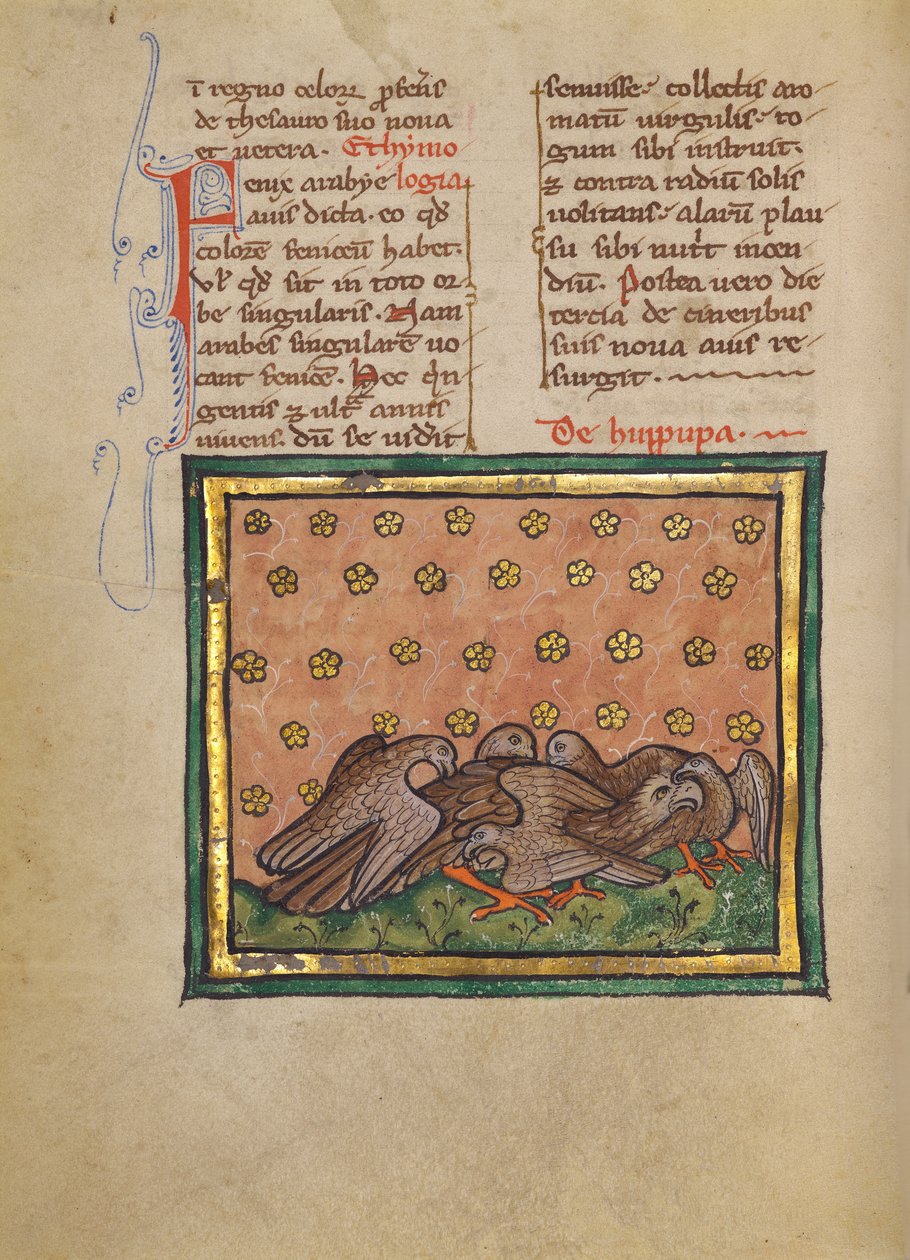 ī regno celoꝝ ꝓferēs
de thesauro suo noua
et uetera. Ethimo
Fenix arabye logia
auis dicta. eo qđ
colorē feniceū habet.
vl̓ qđ sit in toto or
be singularis. Nam
arabes singularē uo
cant fenicē. Hec qͥn
gentis ⁊ ultͣ annis
uiuens. dū se uid̓it
senuisse. collectis aro
matū uirgulis. ro
gum sibi instruit.
⁊ contra radiū solis
uolitans. alarū plau
su sibi nut͛t incen
diū. Postea uero die
tercia de cineribus
suis noua auis re
surgit.
De huppupa.